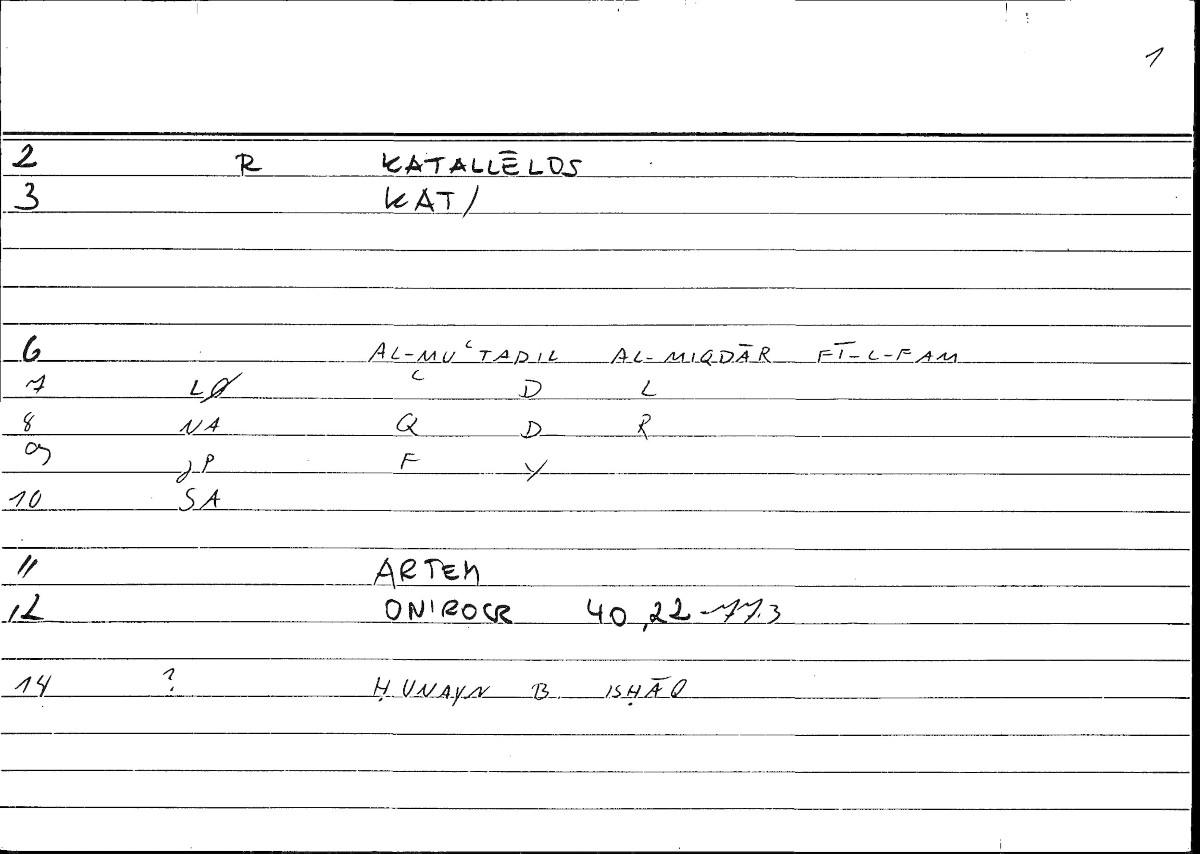 1
2 R KATALLĒLOS
3 KAT/
6 AL-MUʿTADIL AL-MIQDĀR FĪ-L-FAM
7 LØ ʿ D L
8 NA Q D R
9 JP F Y
10 SA
11 ARTEM
12 ONIROCR 40,22-77.3
14 ? ḤUNAYN B. ISḤĀQ